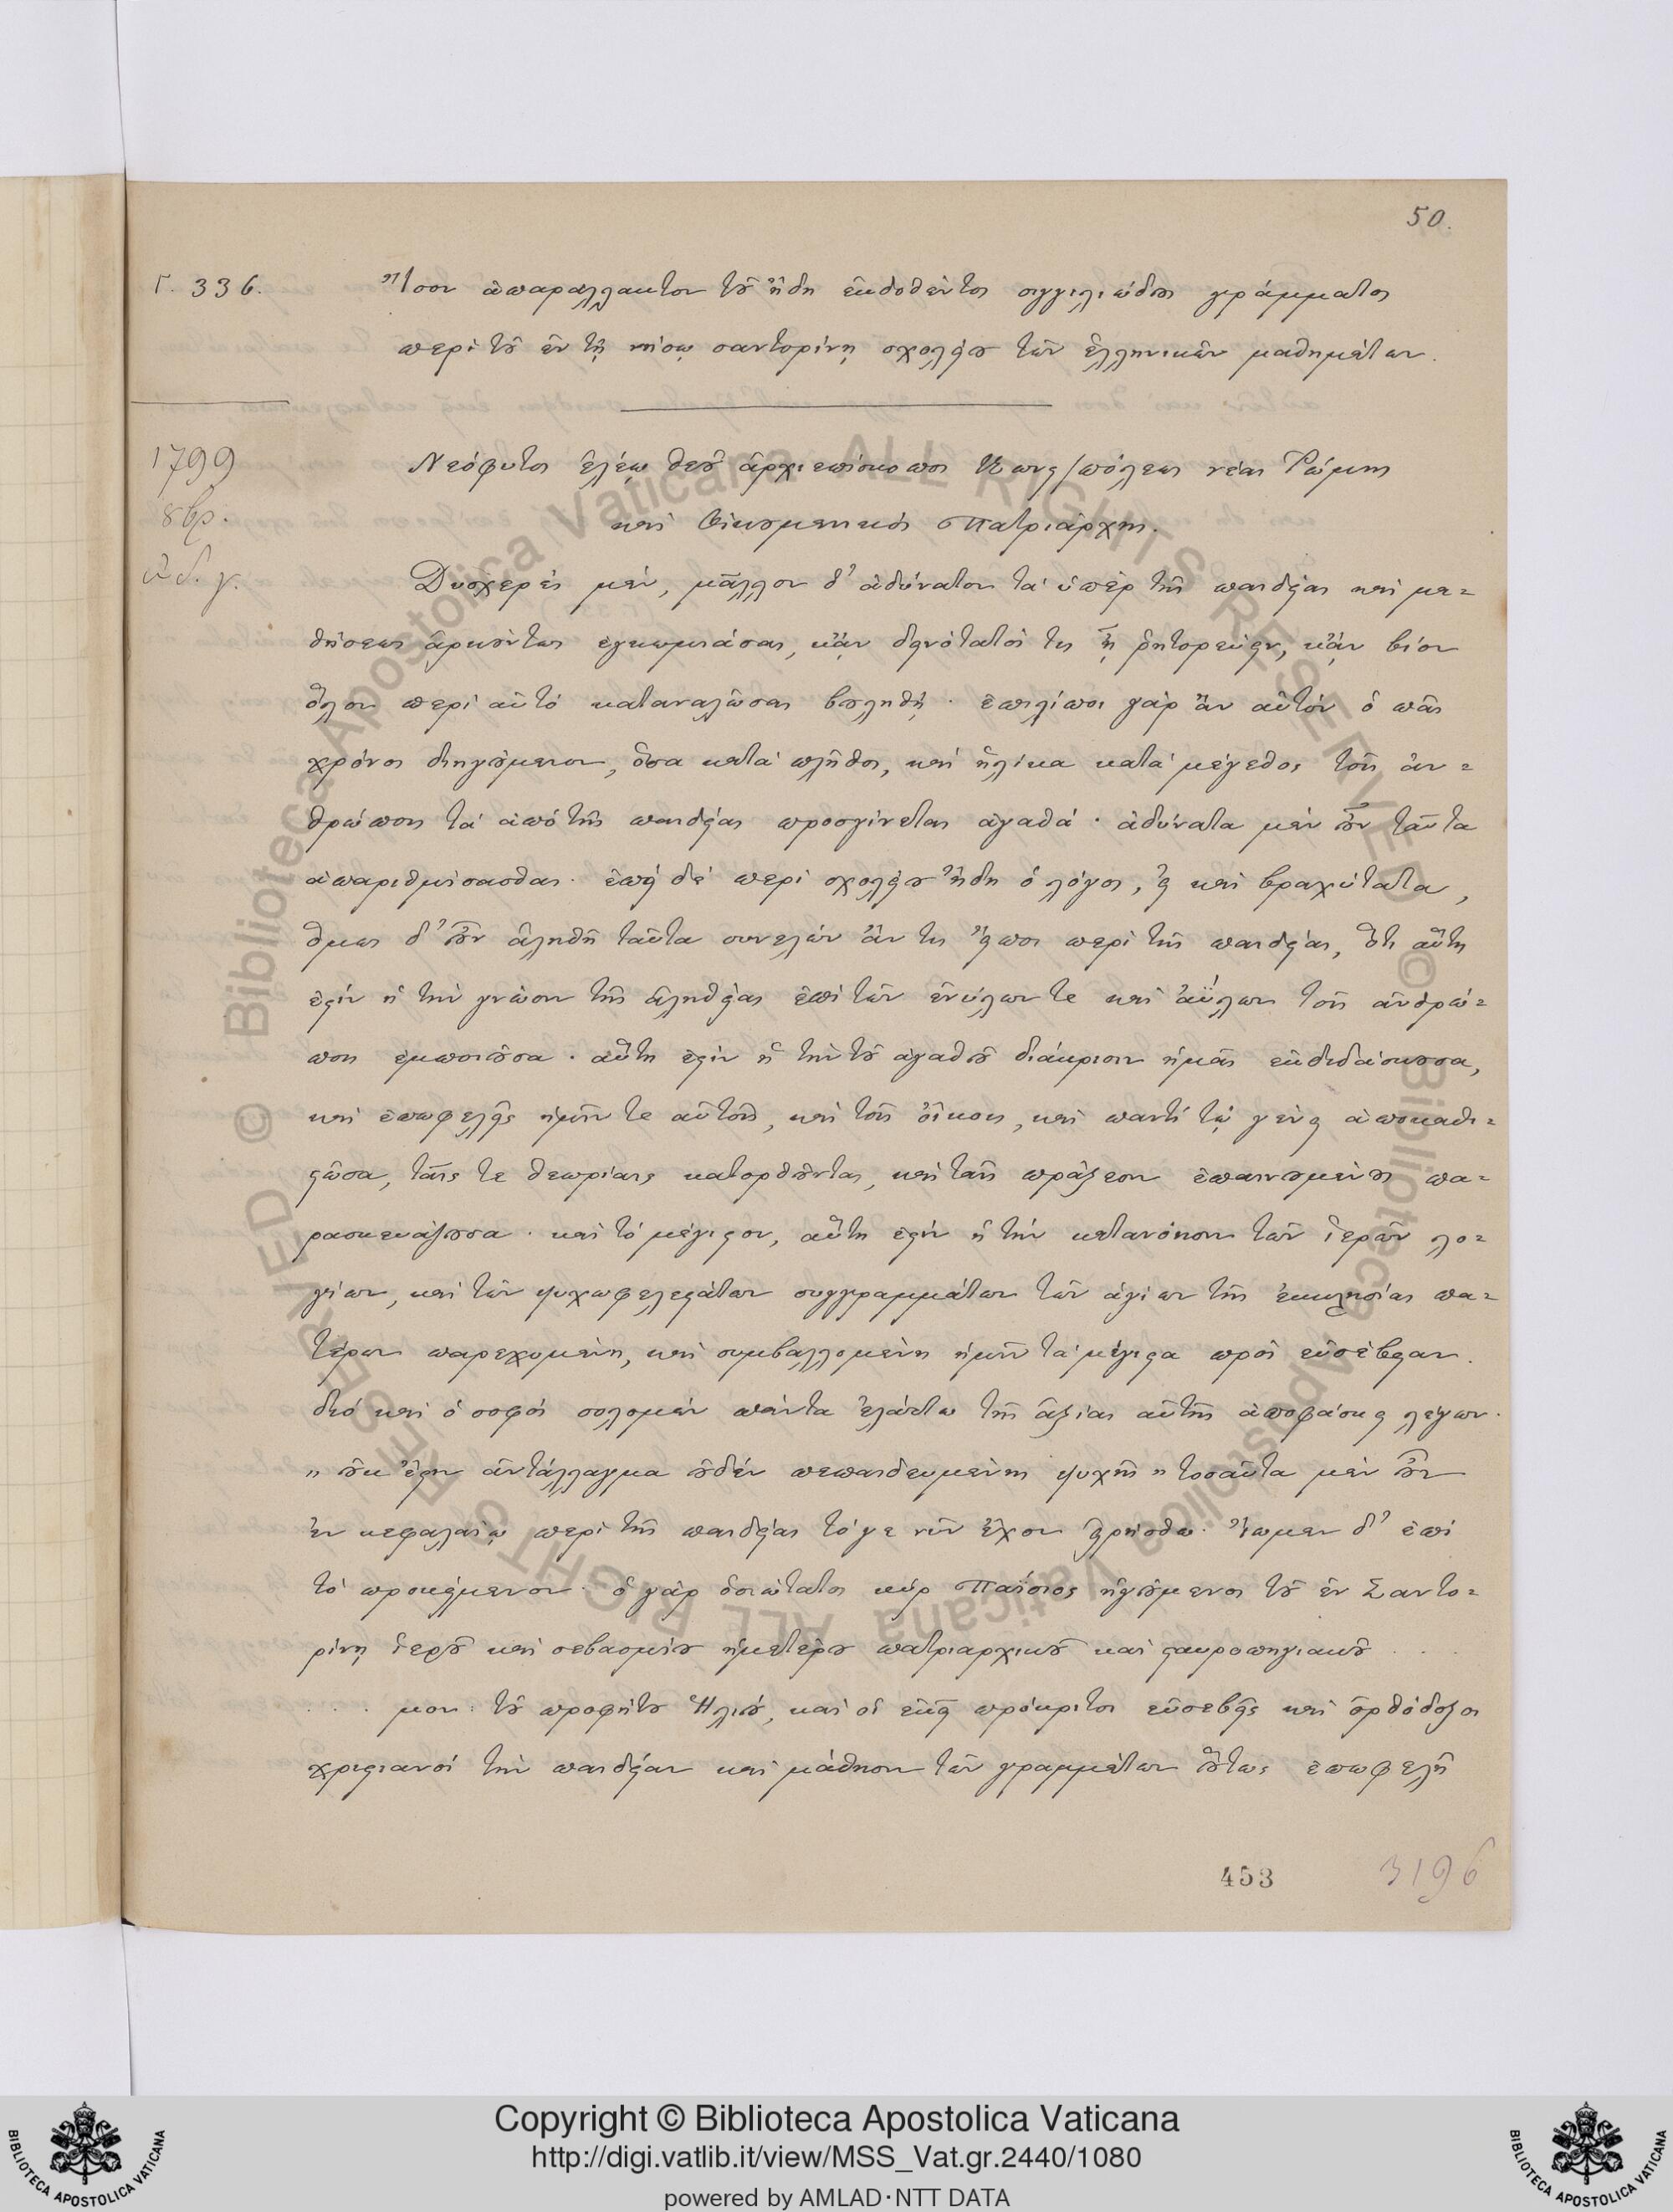 50.
Γ. 336.
Ἴσον ἀπαράλλακτον τοῦ ἤδη ἐκδοθέντος σιγγιλιώδους γράμματος
περὶ τοῦ ἐν τῇ νήσῳ σαντορίνῃ σχολείου τῶν ἑλληνικῶν μαθημάτων.
1799
8βρ.
ἰνδ. γ.
Νεόφυτος ἐλέῳ θεοῦ ἀρχιεπίσκοπος Κωνς/πόλεως νέας Ῥώμης
καὶ Οἰκουμενικὸς Πατριάρχης.
Δυσχερὲς μὲν, μᾶλλον δ' ἀδύνατον τὰ ὑπὲρ τῆς παιδείας καὶ μα-
θήσεως ἀρκούντως ἐγκωμιάσαι, κᾂν δεινότατός τις ᾖ ῥητορεύειν, κᾂν βίον
ὅλον περὶ αὐτὸ καταναλῶσαι βουληθῇ· ἐπιλίποι γὰρ ἂν αὐτὸν ὁ πᾶς
χρόνος διηγούμενον, ὅσα κατὰ πλῆθος, καὶ ἡλίκα κατὰ μέγεθος τοῖς ἀν-
θρώποις τὰ ἀπὸ τῆς παιδείας προσγίνεται ἀγαθά· ἀδύνατα μὲν οὖν ταῦτα
ἀπαριθμήσασθαι· ἐπεὶ δὲ περὶ σχολείου ἤδη ὁ λόγος, εἰ καὶ βραχύτατα,
ὅμως δ' οὖν ἀληθῆ ταῦτα συνελὼν ἄν τις εἴποι περὶ τῆς παιδείας, ὅτι αὕτη
ἐστὶν ἡ τὴν γνῶσιν τῆς ἀληθείας ἐπὶ τῶν ἐνύλων τε καὶ ἀΰλων τοῖς ἀνθρώ-
ποις ἐμποιοῦσα· αὕτη ἐστὶν ἡ τὴν τοῦ ἀγαθοῦ διάκρισιν ἡμᾶς ἐκδιδάσκουσα,
καὶ ἐπωφελεῖς ἡμῖν τε αὐτοῖς, καὶ τοῖς οἴκοις, καὶ παντὶ τῷ γένει ἀποκαθι-
στῶσα, ταῖς τε θεωρίαις κατορθοῦντας, καὶ ταῖς πράξεσιν ἐπαινουμένους πα-
ρασκευάζουσα· καὶ τὸ μέγιστον, αὕτη ἐστὶν ἡ τὴν κατανόησιν τῶν ἱερῶν λο-
γίων, καὶ τῶν ψυχωφελεστάτων συγγραμμάτων τῶν ἁγίων τῆς ἐκκλησίας πα-
τέρων παρεχομένη, καὶ συμβαλλομένη ἡμῖν τὰ μέγιστα πρὸς εὐσέβειαν.
διὸ καὶ ὁ σοφὸς σολομὼν πάντα ἐλάττω τῆς ἀξίας αὐτῆς ἀποφάσκει λέγων·
" οὐκ ἔστιν ἀντάλλαγμα οὐδὲν πεπαιδευμένης ψυχῆς " τοσαῦτα μὲν οὖν
ἐν κεφαλαίῳ περὶ τῆς παιδείας τό γε νῦν ἔχον εἰρήσθω· ἴωμεν δ' ἐπὶ
τὸ προκείμενον· ὁ γὰρ ὁσιώτατος κὺρ Παΐσιος ἡγούμενος τοῦ ἐν Σαντο-
ρίνῃ ἱεροῦ καὶ σεβασμίου ἡμετέρου πατριαρχικοῦ καὶ σταυροπηγιακοῦ . . .
. . . μον: τοῦ προφήτου Ἠλιοὺ, καὶ οἱ ἐκεῖ πρόκριτοι εὐσεβεῖς καὶ ὀρθόδοξοι
χριστιανοὶ τὴν παιδείαν καὶ μάθησιν τῶν γραμμάτων οὕτως ἐπωφελῆ
453
3196
© Biblioteca Apostolica Vaticana ALL RIGHTS RESERVED
© Biblioteca Apostolica Vaticana ALL RIGHTS RESERVED
BIBLIOTECA APOSTOLICA VATICANA
Copyright © Biblioteca Apostolica Vaticana
http://digi.vatlib.it/view/MSS_Vat.gr.2440/1080
powered by AMLAD·NTT DATA
BIBLIOTECA APOSTOLICA VATICANA